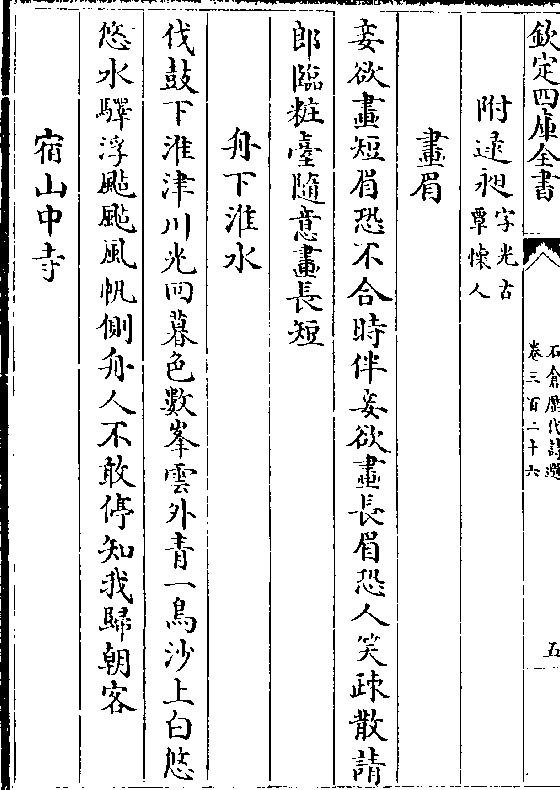 欽定四庫全書
石倉歷代詩選
卷三百二十六
五
附逯昶字光古
覃懷人
畫眉
妾欲畫短眉恐不合時伴妾欲畫長眉恐人笑疎散請
郎臨粧臺隨意畫長短
舟下淮水
伐鼓下淮津川光回暮色數峯雲外青一鳥沙上白悠
悠水驛浮颭颭風帆側舟人不敢停知我歸朝客
宿山中寺